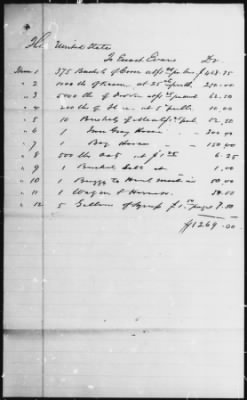 The United States
To Enoch Evans Dr
Item 1 375 Bushels of Corn at $1.25 per bu $468.75
" 2 1000 lb of Bacon at 25 cts per lb 250.00
" 3 5000 lb of Fodder at per 62.50
" 4 200 lb of at 5 per lb 10.00
" 5 10 Bushels of 12.50
" 6 1 Iron Gray Horse 300.00
" 7 1 Bay Horse 150.00
" 8 500 lb Oats at $1.25 6.25
" 9 1 Bushel Salt at 1.00
" 10 1 Buggy to Haul meal in 50.00
" 11 1 Wagon & Harness
" 12 5 Gallons of Syrup $1.50 per g
$1269.00